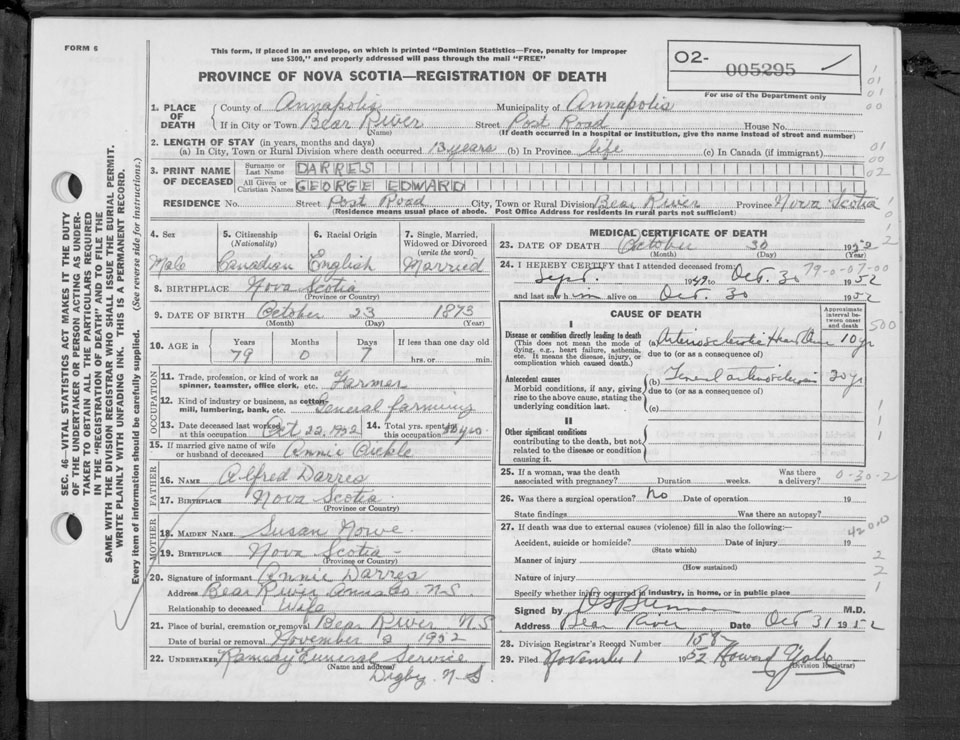 FORM 6
This form, if placed in an envelope, on which is printed "Dominion Statistics—Free, penalty for improper
use $300," and properly addressed will pass through the mail "FREE"
PROVINCE OF NOVA SCOTIA—REGISTRATION OF DEATH
O2- 005295
For use of the Department only
SEC. 46—VITAL STATISTICS ACT MAKES IT THE DUTY
OF THE UNDERTAKER OR PERSON ACTING AS UNDER-
TAKER TO OBTAIN ALL THE PARTICULARS REQUIRED
IN THE "REGISTRATION OF DEATH" AND TO FILE THE
SAME WITH THE DIVISION REGISTRAR WHO SHALL ISSUE THE BURIAL PERMIT.
WRITE PLAINLY WITH UNFADING INK. THIS IS A PERMANENT RECORD.
Every item of information should be carefully supplied. (See reverse side for instructions.)
1. PLACE OF DEATH County of Annapolis Municipality of Annapolis
If in City or Town Bear River Street Post Road House No.
(Name) (If death occurred in a hospital or institution, give the name instead of street and number)
2. LENGTH OF STAY (in years, months and days)
(a) In City, Town or Rural Division where death occurred 13 years (b) In Province life (c) In Canada (if immigrant)
3. PRINT NAME OF DECEASED Surname or Last Name DARRES
All Given or Christian Names GEORGE EDWARD
RESIDENCE No. Street Post Road City, Town or Rural Division Bear River Province Nova Scotia
(Residence means usual place of abode. Post Office Address for residents in rural parts not sufficient)
4. Sex 5. Citizenship (Nationality) 6. Racial Origin 7. Single, Married, Widowed or Divorced (write the word)
Male Canadian English Married
8. BIRTHPLACE Nova Scotia
(Province or Country)
9. DATE OF BIRTH October 23 1873
(Month) (Day) (Year)
10. AGE in Years Months Days If less than one day old
79 0 7 hrs. or min.
OCCUPATION
11. Trade, profession, or kind of work as
spinner, teamster, office clerk, etc. Farmer
12. Kind of industry or business, as cotton-
mill, lumbering, bank, etc. General farming
13. Date deceased last worked at this occupation Oct 22, 1952 14. Total yrs. spent in this occupation
15. If married give name of wife
or husband of deceased Annie
FATHER
16. NAME Alfred Darres
17. BIRTHPLACE Nova Scotia
(Province or Country)
MOTHER
18. MAIDEN NAME Susan Howe
19. BIRTHPLACE Nova Scotia -
(Province or Country)
20. Signature of informant Annie Darres
Address Bear River Anna Co. N.S.
Relationship to deceased Wife
21. Place of burial, cremation or removal Bear River N.S
Date of burial or removal November 2 1952
22. UNDERTAKER Funeral Service
(Name and address) Digby N.S.
MEDICAL CERTIFICATE OF DEATH
23. DATE OF DEATH October 30 1952
(Month) (Day) (Year)
24. I HEREBY CERTIFY that I attended deceased from 79-0-07-00
Sept. 1949 to Oct. 30 1952
and last saw him alive on Oct. 30 1952
CAUSE OF DEATH
Approximate interval between onset and death
I
Disease or condition directly leading to death
(This does not mean the mode of
dying, e.g., heart failure, asthenia,
etc. It means the disease, injury, or
complication which caused death.)
(a) Arteriosclerotic Heart 10 yr
due to (or as a consequence of)
Antecedent causes
Morbid conditions, if any, giving
rise to the above cause, stating the
underlying condition last.
(b) General arteriosclerosis 20 yr
due to (or as a consequence of)
(c)
II
Other significant conditions
contributing to the death, but not
related to the disease or condition
causing it.
25. If a woman, was the death
associated with pregnancy? Duration weeks. Was there a delivery? 0-30-2
26. Was there a surgical operation? No Date of operation 19
State findings Was there an autopsy?
27. If death was due to external causes (violence) fill in also the following:— 4200
Accident, suicide or homicide? Date of injury 19
(State which)
Manner of injury
(How sustained)
Nature of injury
Specify whether injury occurred in industry, in home, or in public place
Signed by M.D.
Address Bear River Date Oct 31 1952
28. Division Registrar's Record Number
29. Filed November 1 1952 Howard
(Division Registrar)